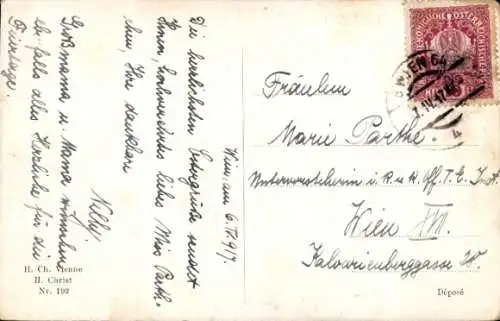 Wien, am 6. IV. 917.
Die herzlichsten Ostergrüße sendet
Ihnen, hochverehrtes liebes Miss Parth-
chen, Ihre dankbare
Nelly
Großmama u. Mama wünschen
ebenfalls alles Herzliche für die
Feiertage.
H. Ch. Vienne
H. Christ
Nr. 192
KAISERLICHE KÖNIGLICHE ÖSTERREICHISCHE POST
WIEN 64
7.IV.17
Fräulein
Marie Parthe
Untervorsteherin i. k. u. k. Off. T. E. Inst.
Wien XVII.
Kalvarienberggasse
Déposé